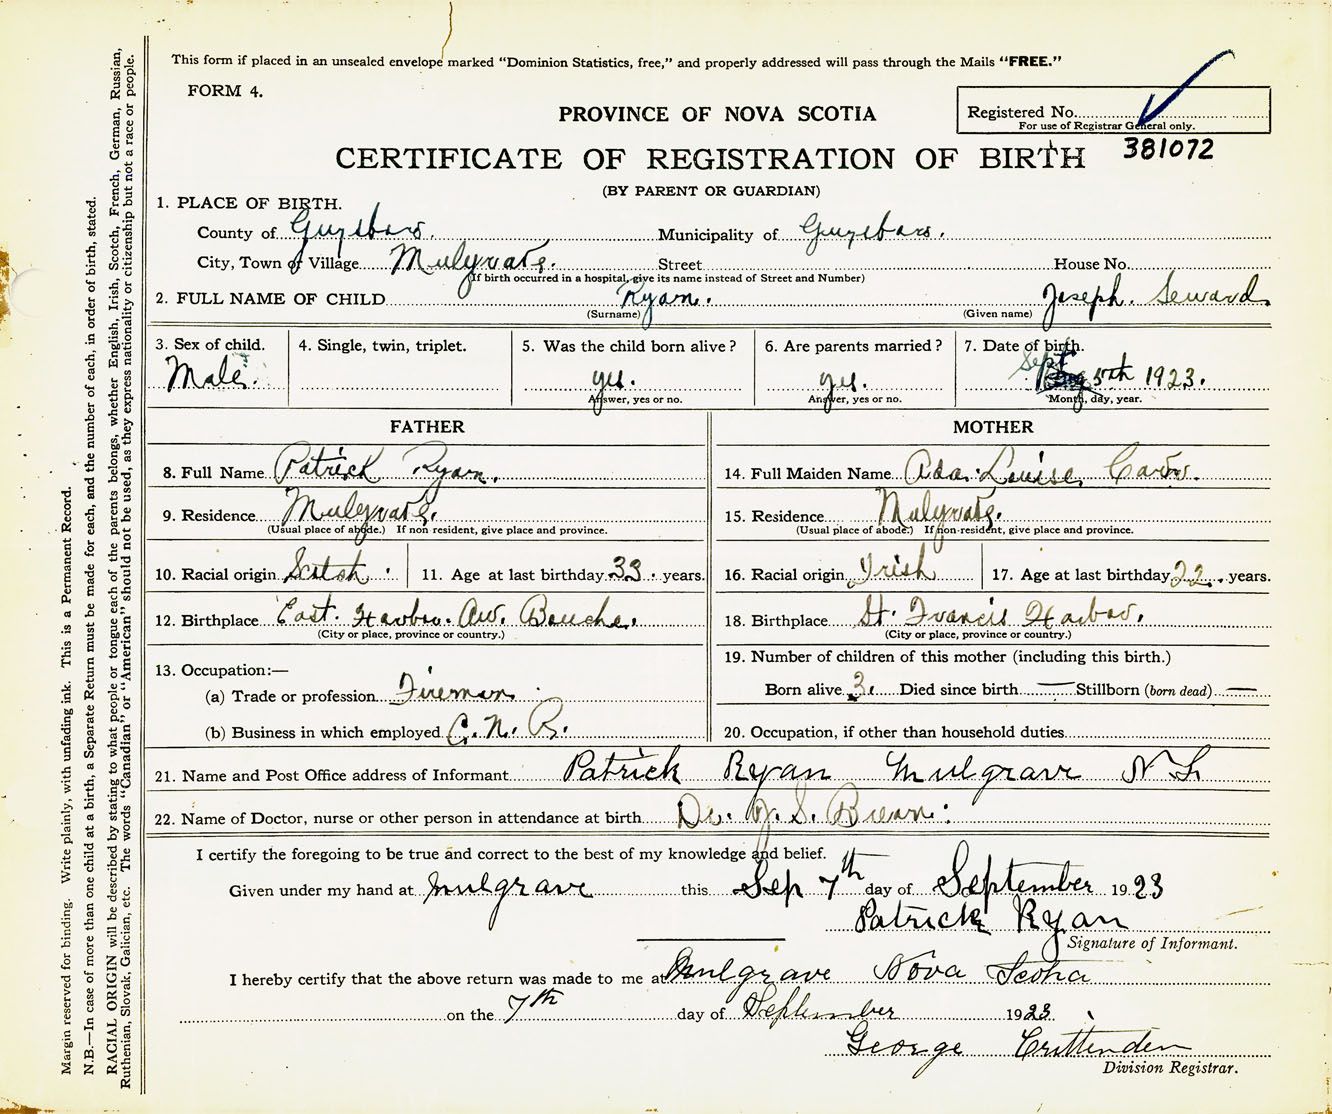 This form if placed in an unsealed envelope marked "Dominion Statistics, free," and properly addressed will pass through the Mails "FREE."
FORM 4.
PROVINCE OF NOVA SCOTIA
Registered No.
For use of Registrar General only.
CERTIFICATE OF REGISTRATION OF BIRTH 381072
(BY PARENT OR GUARDIAN)
1. PLACE OF BIRTH.
County of Guysboro. Municipality of Guysboro.
City, Town of Village Mulgrave. Street House No.
(If birth occurred in a hospital, give its name instead of Street and Number)
2. FULL NAME OF CHILD Ryan. Joseph. Seward
(Surname) (Given name)
3. Sex of child. 4. Single, twin, triplet. 5. Was the child born alive? 6. Are parents married? 7. Date of birth.
Male. yes. yes. Sept 5th 1923.
Answer, yes or no. Answer, yes or no. Month, day, year.
FATHER MOTHER
8. Full Name Patrick Ryan. 14. Full Maiden Name Ada. Louise
9. Residence Mulgrave. 15. Residence Mulgrave.
(Usual place of abode.) If non resident, give place and province. (Usual place of abode.) If non-resident, give place and province.
10. Racial origin Scotch. 11. Age at last birthday 33. years. 16. Racial origin Irish 17. Age at last birthday 22. years.
12. Birthplace East. Harbor. Bouche. 18. Birthplace St. Francis Harbor.
(City or place, province or country.) (City or place, province or country.)
13. Occupation:— 19. Number of children of this mother (including this birth.)
(a) Trade or profession Fireman. Born alive 3. Died since birth — Stillborn (born dead) —
(b) Business in which employed C. N. R. 20. Occupation, if other than household duties
21. Name and Post Office address of Informant Patrick Ryan Mulgrave N S
22. Name of Doctor, nurse or other person in attendance at birth Dr. J. S. Brean.
I certify the foregoing to be true and correct to the best of my knowledge and belief.
Given under my hand at Mulgrave this Sep 7th day of September 1923
Patrick Ryan
Signature of Informant.
I hereby certify that the above return was made to me at Mulgrave Nova Scotia
on the 7th day of September 1923.
George Crittenden
Division Registrar.
Margin reserved for binding. Write plainly, with unfading ink. This is a Permanent Record.
N.B.—In case of more than one child at a birth, a Separate Return must be made for each, and the number of each, in order of birth, stated.
RACIAL ORIGIN will be described by stating to what people or tongue each of the parents belongs, whether English, Irish, Scotch, French, German, Russian,
Ruthenian, Slovak, Galician, etc. The words "Canadian" or "American" should not be used, as they express nationality or citizenship but not a race or people.